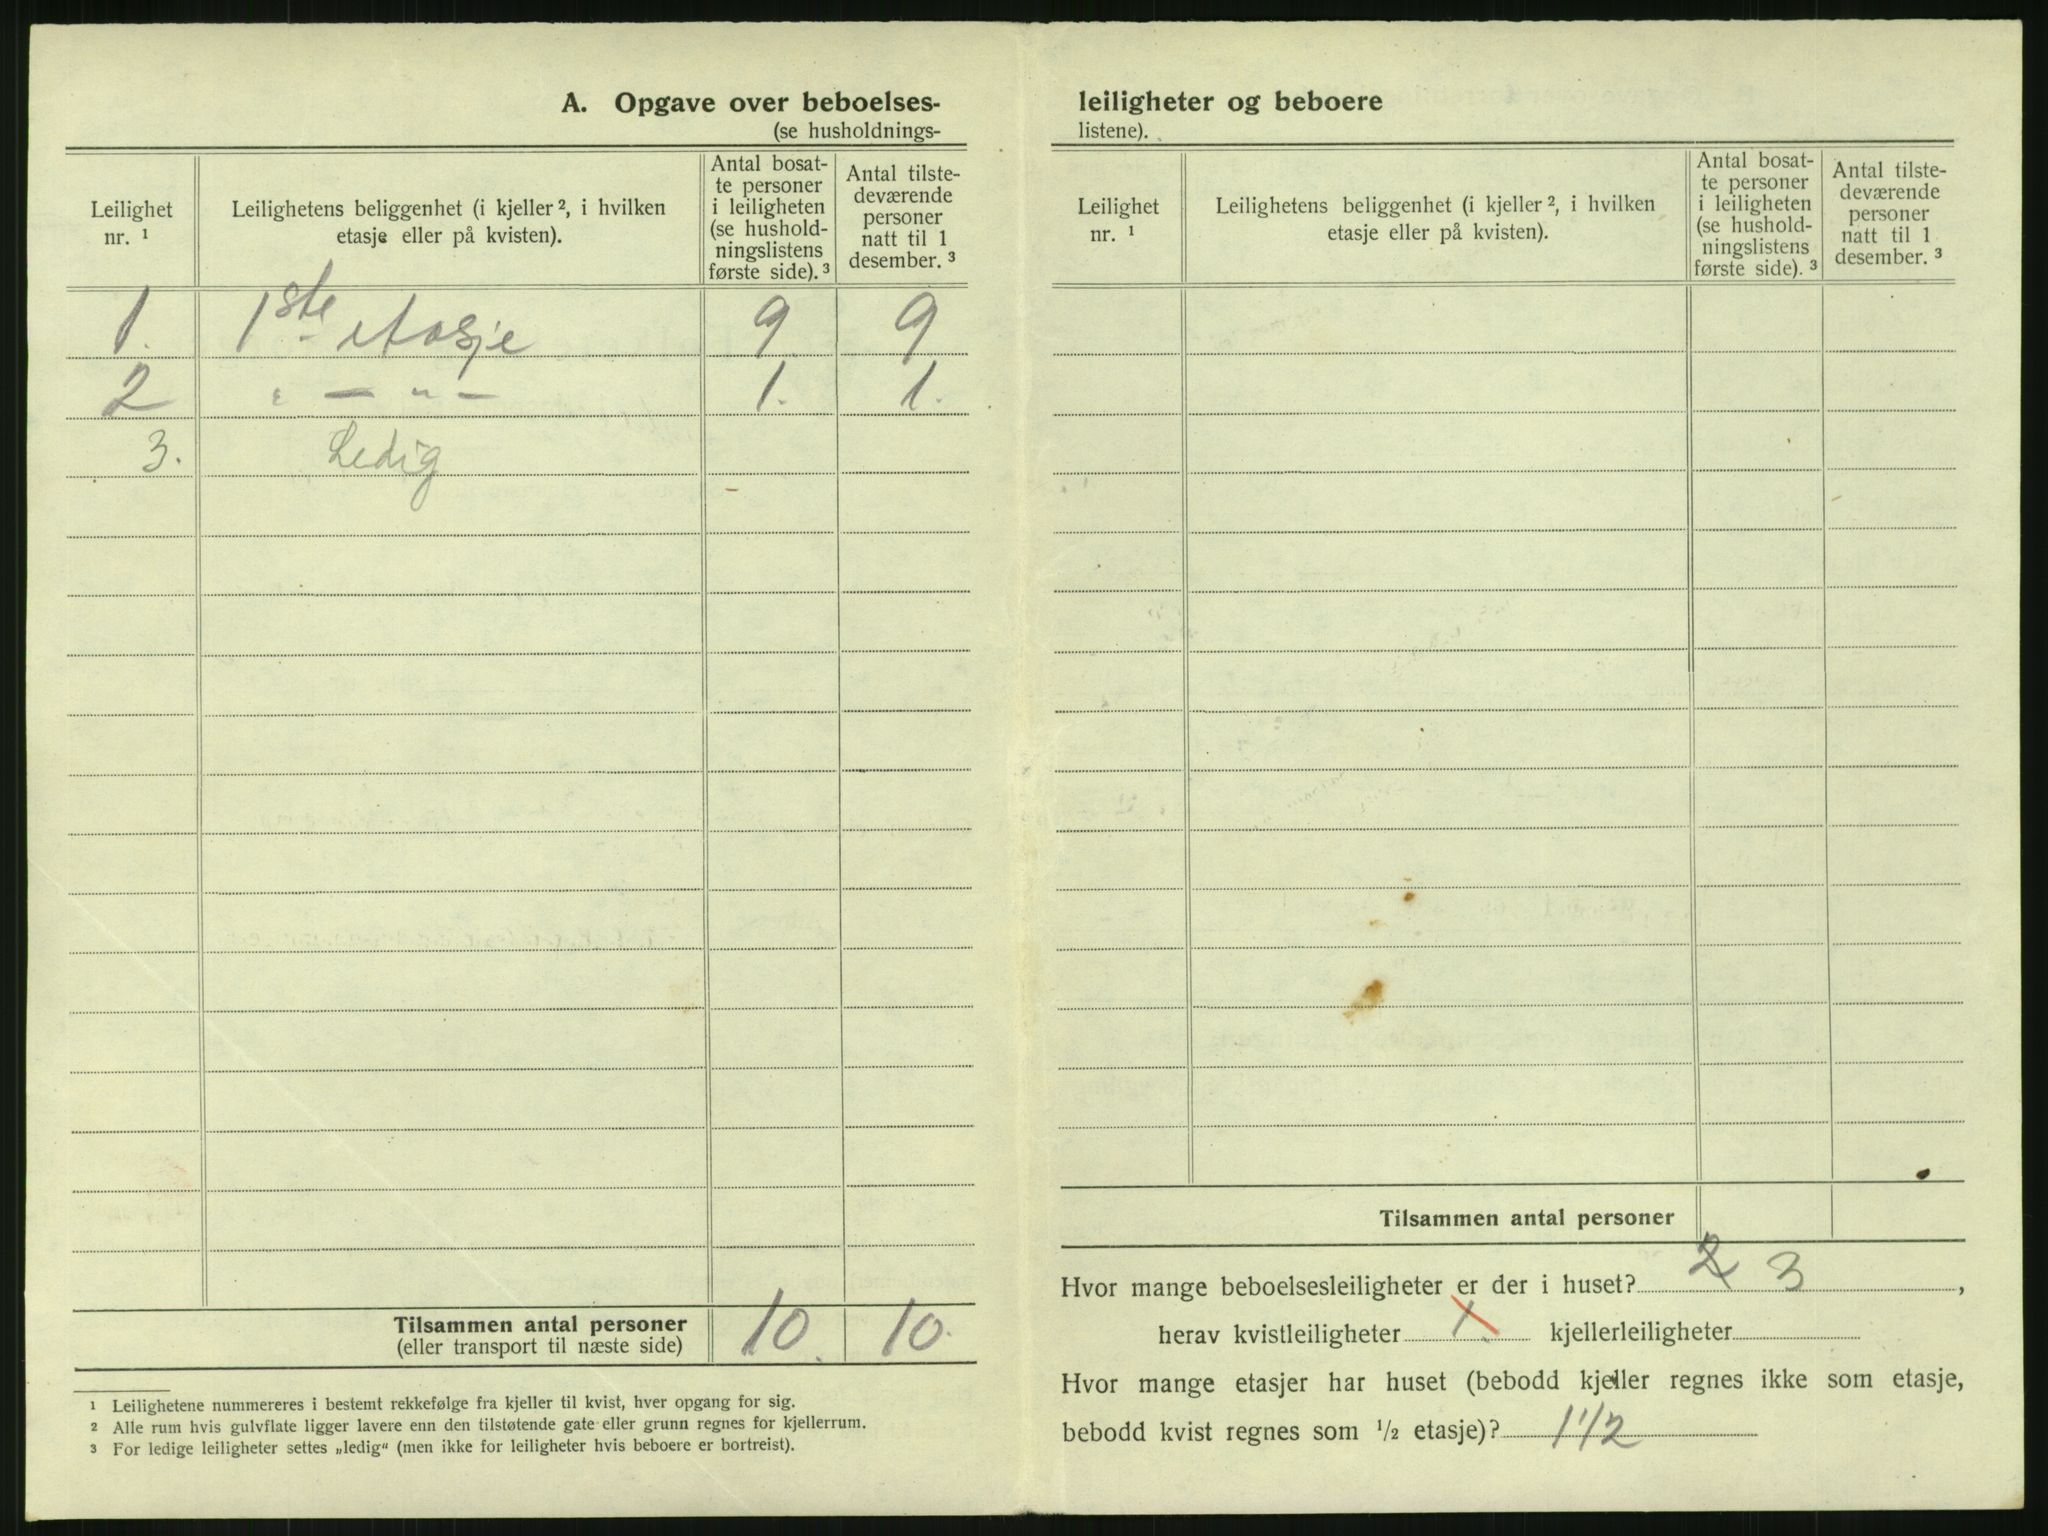 A. Opgave over beboelses-
(se husholdnings-
Leilighet nr. ¹
Leilighetens beliggenhet (i kjeller ², i hvilken
etasje eller på kvisten).
Antal bosat-
te personer
i leiligheten
(se hushold-
ningslistens
første side). ³
Antal tilste-
deværende
personer
natt til 1
desember. ³
1. 1ste etasje 9 9
2 " — " — 1. 1.
3. Ledig
Tilsammen antal personer 10. 10.
(eller transport til næste side)
¹ Leilighetene nummereres i bestemt rekkefølge fra kjeller til kvist, hver opgang for sig.
² Alle rum hvis gulvflate ligger lavere enn den tilstøtende gate eller grunn regnes for kjellerrum.
³ For ledige leiligheter settes „ledig“ (men ikke for leiligheter hvis beboere er bortreist).
leiligheter og beboere
listene).
Leilighet
nr. ¹
Leilighetens beliggenhet (i kjeller ², i hvilken
etasje eller på kvisten).
Antal bosat-
te personer
i leiligheten
(se hushold-
ningslistens
første side). ³
Antal tilste-
deværende
personer
natt til 1
desember. ³
Tilsammen antal personer
Hvor mange beboelsesleiligheter er der i huset? 2 3,
herav kvistleiligheter 1. kjellerleiligheter
Hvor mange etasjer har huset (bebodd kjeller regnes ikke som etasje,
bebodd kvist regnes som ½ etasje)? 1 1/2